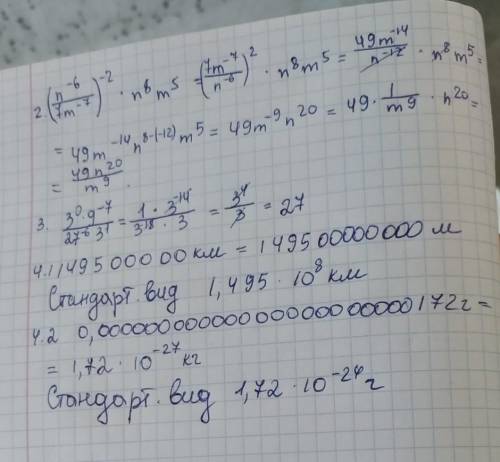 2. (n⁻⁶/7m⁻⁷)⁻² · n⁸m⁵ = (7m⁻⁷/n⁻⁶)² · n⁸m⁵ = 49m⁻¹⁴/n⁻¹² · n⁸m⁵ =
= 49m⁻¹⁴n⁸⁻⁽⁻¹²⁾m⁵ = 49m⁻⁹n²⁰ = 49 · 1/m⁹ · n²⁰ =
= 49n²⁰/m⁹.
3. 3⁰·9⁻⁷/27⁻⁶·3¹ = 1·3⁻¹⁴/3¹⁸·3 = 3⁴/3 = 27
4.1 149500000 км = 149500000000 м
Стандарт. вид 1,495 · 10⁸ км
4.2 0,00000000000000000000000172г =
= 1,72 · 10⁻²⁷ кг
Стандарт. вид 1,72 · 10⁻²⁴ г